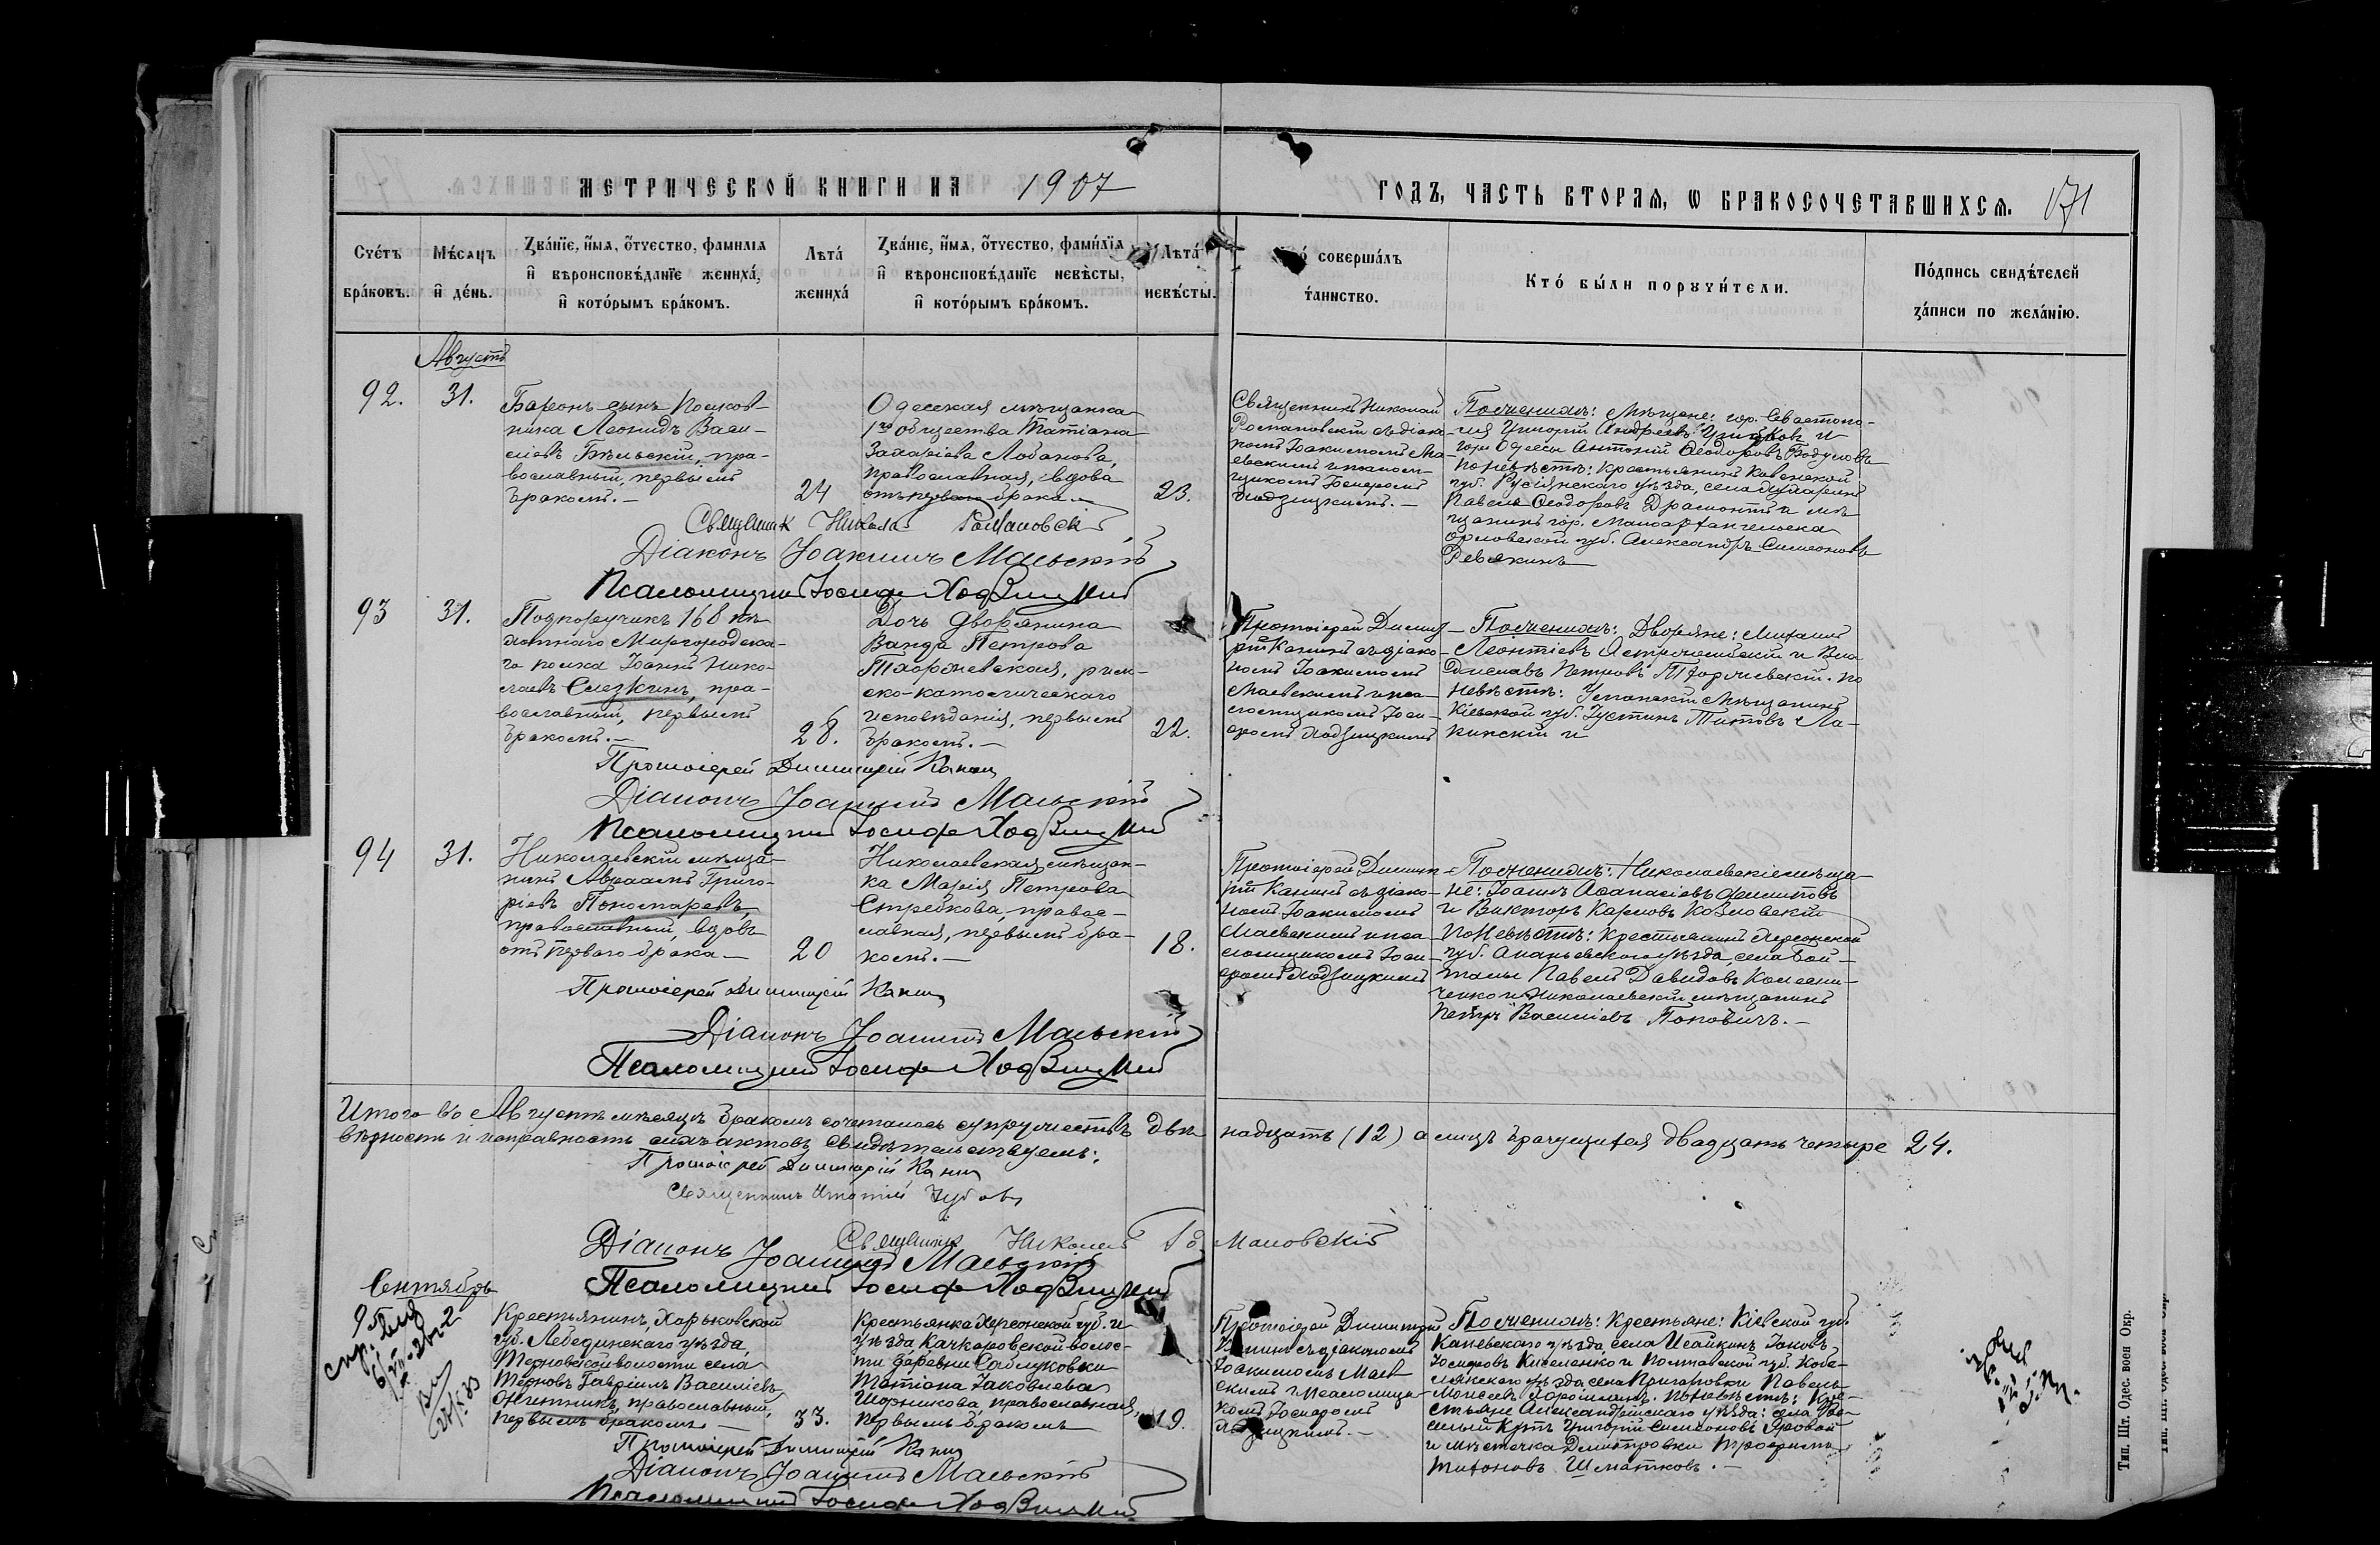 МЕТРИЧЕСКОЙ КНИГИ НА 1907
ГОДЪ, ЧАСТЬ ВТОРАЯ, Ѡ БРАКОСОЧЕТАВШИХСЯ. 171
Счетъ браковъ.
Мѣсяцъ и день.
Званіе, имя, отчество, фамилія
и вѣроисповѣданіе жениха,
и которымъ бракомъ.
Лѣта
жениха
Званіе, имя, отчество, фамилія
и вѣроисповѣданіе невѣсты,
и которымъ бракомъ.
Лѣта
невѣсты.
совершалъ
таинство.
Кто были поручители.
Подпись свидѣтелей
записи по желанію.
Августъ
92. 31.
Баронъ сынъ Полков-
ника Леонидъ Васи-
ліевъ Бѣльскій, пра-
вославный, первымъ
бракомъ.—
24
Одесская мѣщанка
1го общества Татіана
Захаріева Лобанова,
православная, вдова
отъ перваго брака.—
23.
Священникъ Николай
Романовскій съ діако-
номъ Іоакимомъ Ма-
евскимъ и псалом-
щикомъ Іосифомъ
Ходзицкимъ.—
По женихѣ: Мѣщане: гор. Севастопо-
ля Григорій Андреевъ и
гор. Одессы Антоній Ѳеодоровъ
по невѣстѣ: крестьянинъ
губ. уѣзда, села
Павелъ Ѳеодоровъ и мѣ-
щанинъ гор. Малоархангельска
Орловской губ. Александръ Симеоновъ
Ревякинъ
Священник Николай Романовскій
Діаконъ Іоакимъ Маевскій
Псаломщикъ Іосифъ Ходзицкій
93 31.
Подпоручикъ 168 пѣ-
хотнаго Миргородска-
го полка Іоаннъ Нико-
лаевъ Слезкинъ, пра-
вославный, первымъ
бракомъ.—
28.
Дочь дворянина
Ванда Петрова
Тхоржевская, рим-
ско-католическаго
исповѣданія, первымъ
бракомъ.—
22.
Протоіерей Димит-
рій Канинъ съ діако-
номъ Іоакимомъ
Маевскимъ и пса-
ломщикомъ Іоси-
фомъ Ходзицкимъ
По женихѣ: Дворяне: Михаилъ
Леонтіевъ и Вла-
диславъ Петровъ Тхоржевскій. по
невѣстѣ: Уманскій мѣщанинъ
Кіевской губ. Іустинъ Титовъ Ла-
пинскій и
Протоіерей Димитрій Канин
Діаконъ Іоакимъ Маевскій
Псаломщикъ Іосифъ Ходзицкій
94 31.
Николаевскій мѣща-
нинъ Авраамъ Григо-
ріевъ Пономаревъ,
православный, вдовъ
отъ перваго брака—
20
Николаевская мѣщан-
ка Марія Петрова
Стрелкова, правос-
лавная, первымъ бра-
комъ.—
18.
Протоіерей Димит-
рій Канинъ съ діако-
номъ Іоакимомъ
Маевскимъ и пса-
ломщикомъ Іоси-
фомъ Ходзицкимъ
По женихѣ: Николаевскіе мѣща-
не: Іоаннъ Аѳанасіевъ
и Викторъ Карповъ Козловскій
по невѣстѣ: Крестьянинъ Херсонской
губ. Ананьевскаго уѣзда, села
Павелъ Давидовъ
и Николаевскій мѣщанинъ
Петръ Василіевъ Поповичъ.—
Протоіерей Димитрій Канин
Діаконъ Іоакимъ Маевскій
Псаломщикъ Іосифъ Ходзицкій
Итого въ Августѣ мѣсяцѣ бракомъ сочеталось супружествъ двѣ надцать (12) а лицъ брачущихся двадцать четыре 24.
вѣрность и исправность сихъ актовъ свидѣтельствуемъ:
Протоіерей Димитрій Канин
Священникъ Игнатій
Священникъ Николай Романовскій
Діаконъ Іоакимъ Маевскій
Псаломщикъ Іосифъ Ходзицкій
Сентябрь
Крестьянинъ, Харьковской
губ. Лебединскаго уѣзда,
Терновской волости села
Терновъ Гавріилъ Василіевъ
православный,
первымъ бракомъ.—
33.
Крестьянка Херсонской губ. и
уѣзда Качкаровской волос-
ти деревни Саблуковки
Татіана Іаковлева
Шорникова, православная,
первымъ бракомъ
19.
Протоіерей Димитрій
Канинъ съ діакономъ
Іоакимомъ Маев-
скимъ и псаломщи-
комъ Іосифомъ
Ходзицкимъ.—
По женихѣ: Крестьяне: Кіевской губ.
Каневскаго уѣзда, села Исайкинъ Іаковъ
Іосифовъ Киселенко и Полтавской губ. Кобе-
лякскаго уѣзда, села Пригаровки Павелъ
Моисеевъ по невѣстѣ: Кре-
стьяне Александрійскаго уѣзда: села Ве-
селый Кутъ Григорій Симеоновъ Яровой
и мѣстечка Дмитровки Трофимъ
Тихоновъ Шматковъ.—
Протоіерей Димитрій Канин
Діаконъ Іоакимъ Маевскій
Псаломщикъ Іосифъ Ходзицкій
Тип. Шт. Одес. воен Окр.